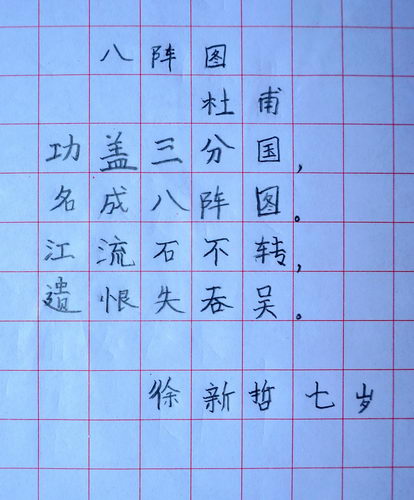 八阵图
杜甫
功盖三分国，
名成八阵图。
江流石不转，
遗恨失吞吴。
徐新哲七岁